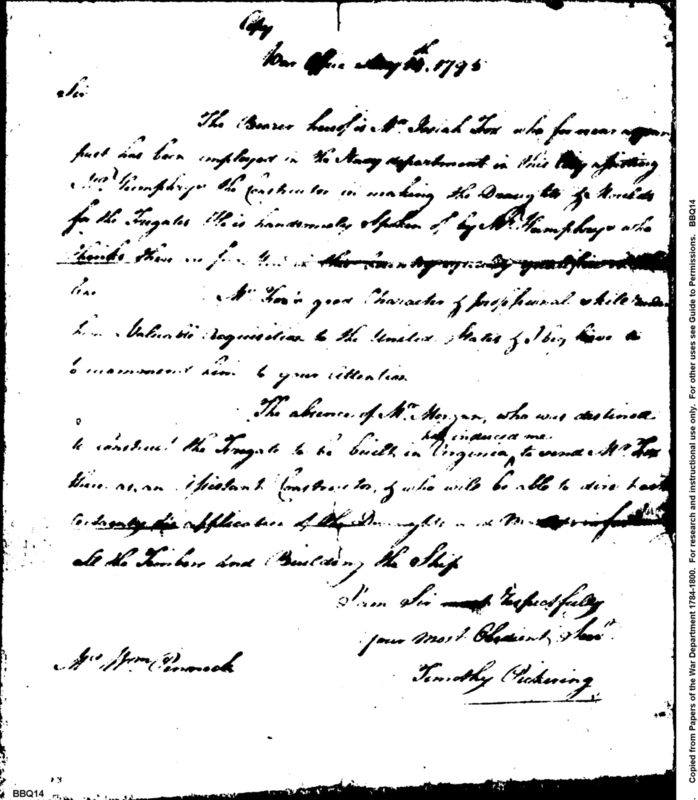 Copy
War Office May 14th. 1795
Sir
The Bearer hereof is Mr. Josiah Fox who for near a year
past has been employed in the Navy department in this City assisting
Mr. Humphrys the Constructor in making the Draughts & Moulds
for the Frigates. He is handsomely Spoken of by Mr. Humphrys who
thinks there are few
line Mr. Fox's good Character & professional skill render
him Valuable acquisition to the United States & I beg leave to
recommend him to your attention
The absence of Mr. Morgan, who was destined
to construct the Frigate to be built in Virginia, has induced me to send Mr. Fox
there as an Assistant Constructor, & who will be able to direct
certainty the application of the Draughts and
all the Timbers and Building the Ship
I am Sir most respectfully
your most Obedient Servt.
Timothy Pickering
Mr. Wm. Pennock
BBQ14
Copied from Papers of the War Department 1784-1800. For research and instructional use only. For other uses see Guide to Permissions. BBQ14